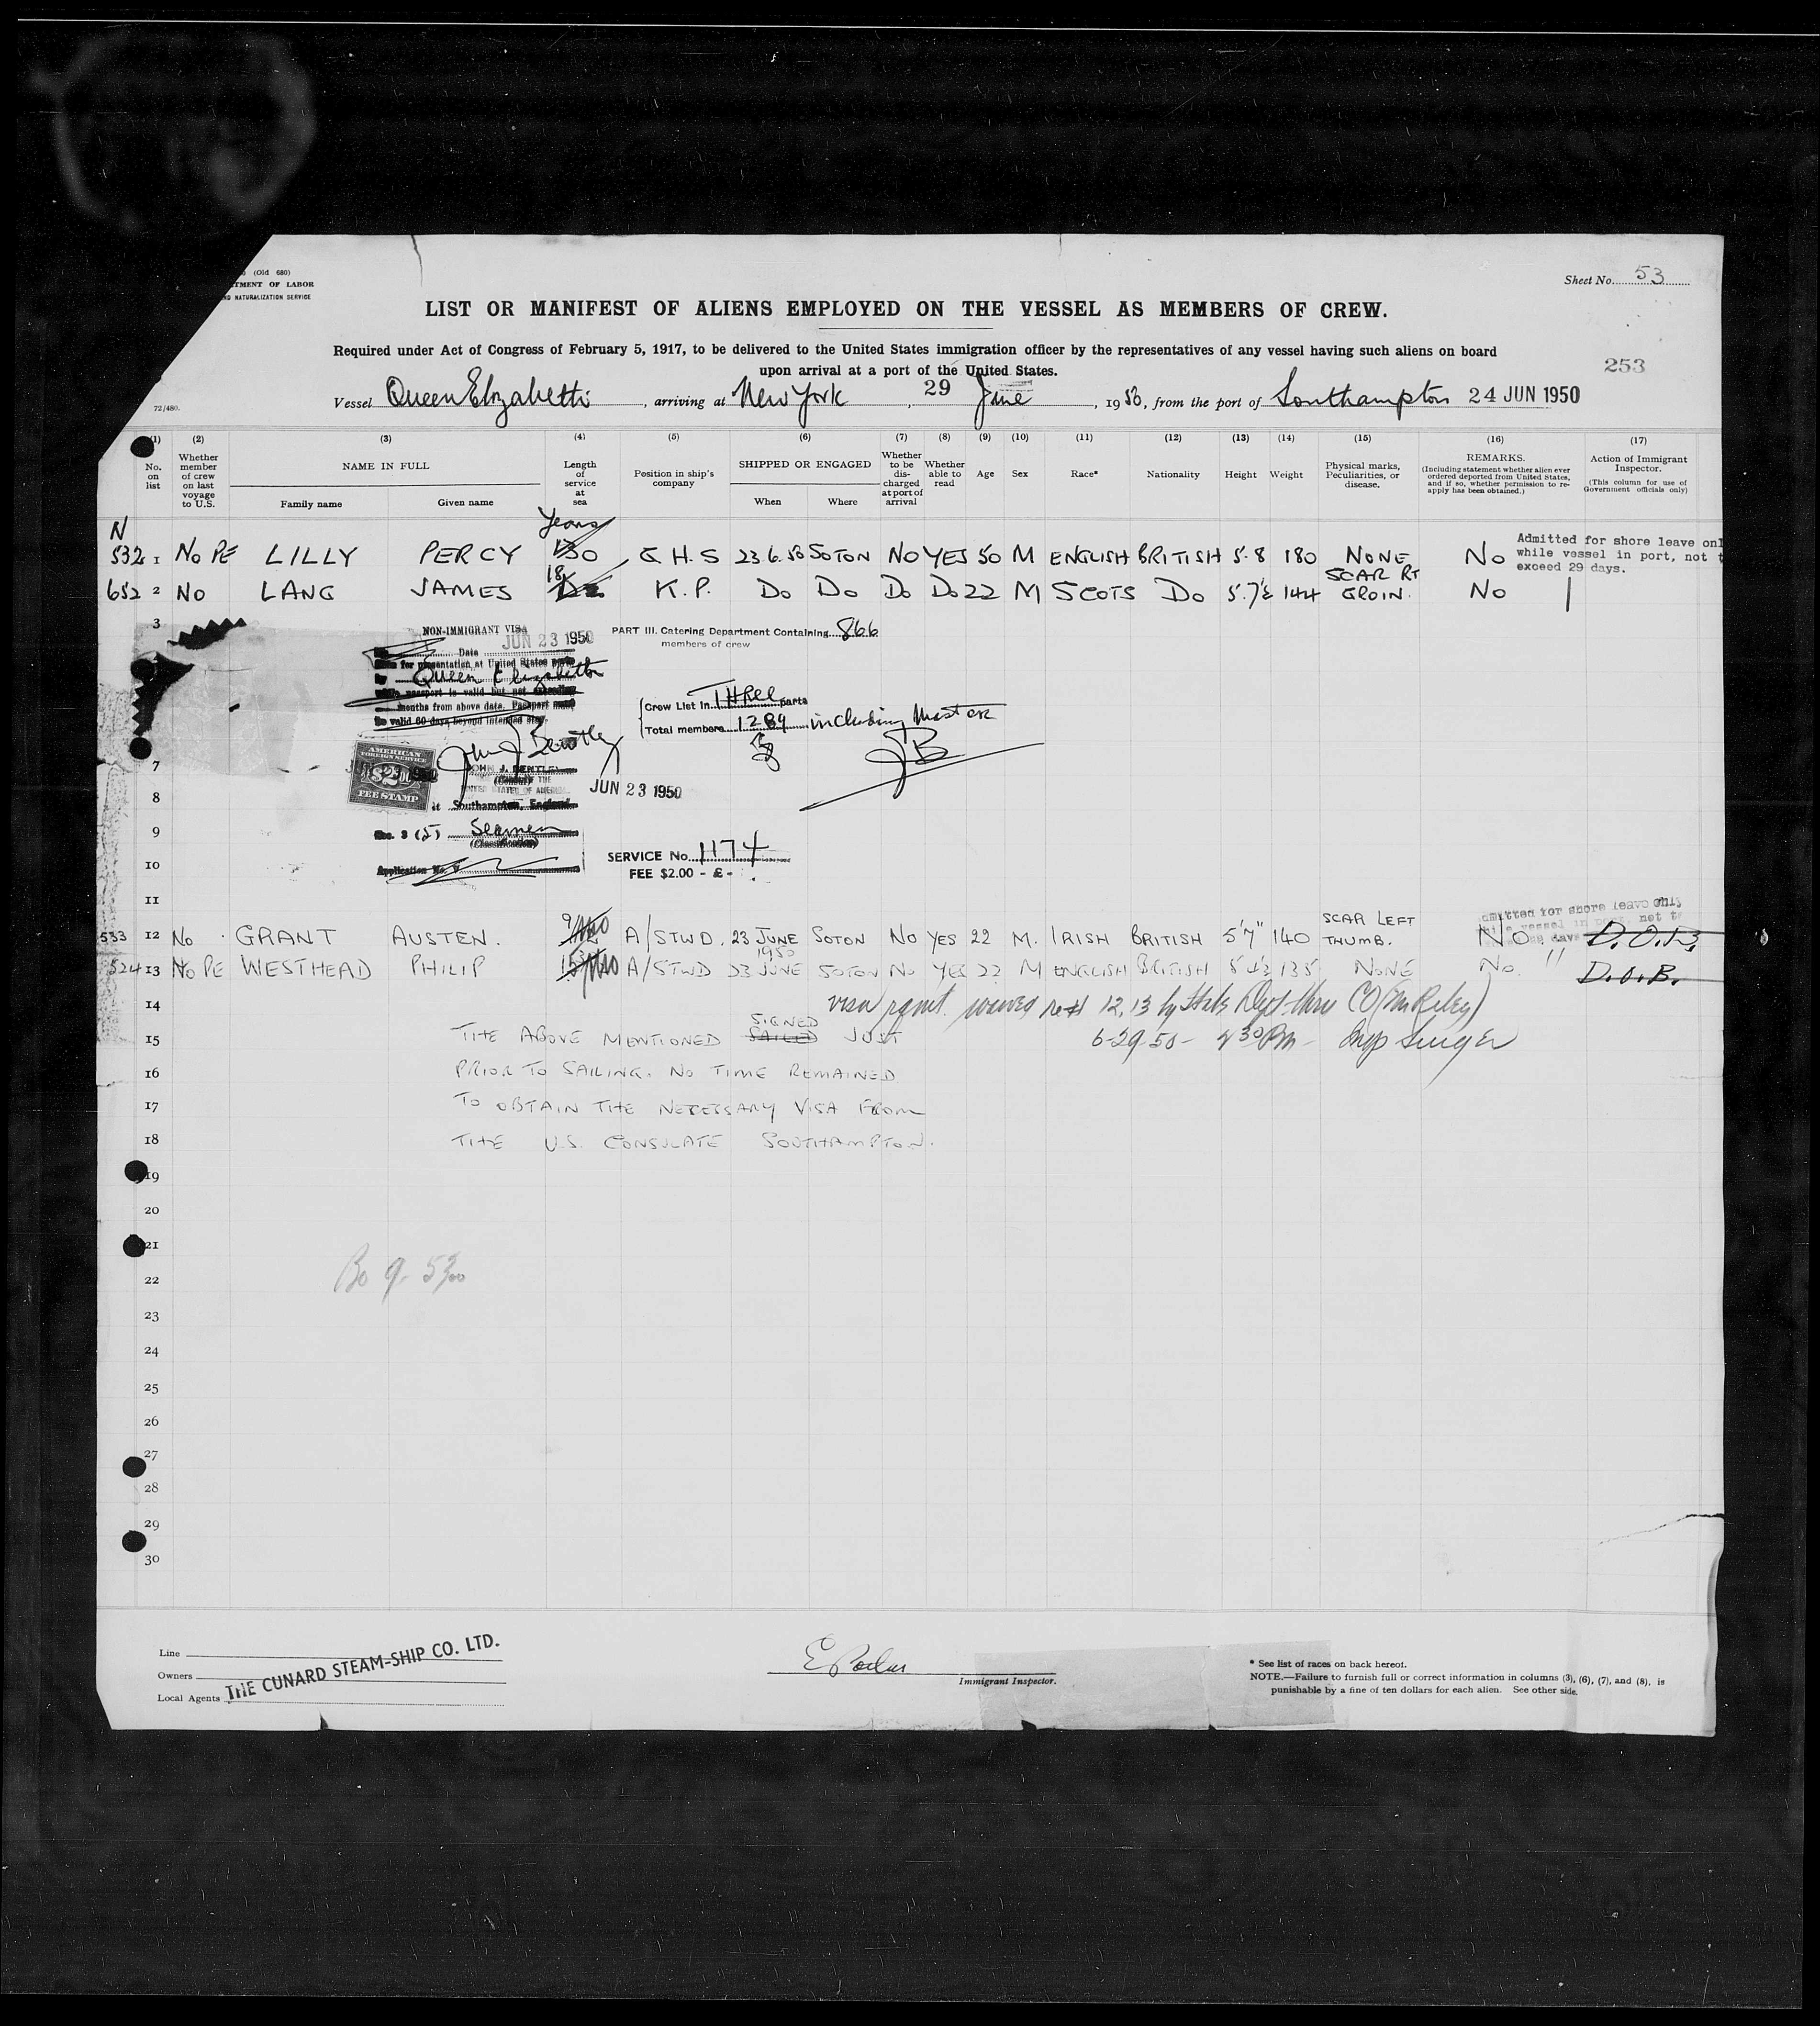 (Old 680)
TMENT OF LABOR
ND NATURALIZATION SERVICE
Sheet No. 53
LIST OR MANIFEST OF ALIENS EMPLOYED ON THE VESSEL AS MEMBERS OF CREW.
Required under Act of Congress of February 5, 1917, to be delivered to the United States immigration officer by the representatives of any vessel having such aliens on board
upon arrival at a port of the United States.
253
72/480.
Vessel Queen Elizabeth, arriving at New York, 29 June, 1950, from the port of Southampton 24 JUN 1950
(1) (2) (3) (4) (5) (6) (7) (8) (9) (10) (11) (12) (13) (14) (15) (16) (17)
No. on list
Whether member of crew on last voyage to U.S.
NAME IN FULL
Family name Given name
Length of service at sea
Position in ship's company
SHIPPED OR ENGAGED
When Where
Whether to be discharged at port of arrival
Whether able to read
Age
Sex
Race*
Nationality
Height
Weight
Physical marks, Peculiarities, or disease.
REMARKS.
(Including statement whether alien ever ordered deported from United States, and if so, whether permission to reapply has been obtained.)
Action of Immigrant Inspector.
(This column for use of Government officials only)
N
Years
532 1 No PE LILLY PERCY 30 G.H.S 23.6.50 SOTON NO YES 50 M ENGLISH BRITISH 5.8 180 NONE No
Admitted for shore leave onl
while vessel in port, not t
exceed 29 days.
652 2 NO LANG JAMES 18 K.P. Do Do Do Do 22 M SCOTS Do 5.7½ 144 SCAR RT GROIN. No
3
NON-IMMIGRANT VISA
JUN 23 1950
Date
for presentation at United States
Queen Elizabeth
passport is valid but not
months from above date. Passport
valid 60 days beyond intended stay.
John J Bentley
JOHN J. BENTLEY
UNITED STATES OF AMERICA
at Southampton, England
JUN 23 1950
AMERICAN
FOREIGN SERVICE
$2
FEE STAMP
Sec. 3 (5) Seamen
(Classification)
Application No. V
PART III. Catering Department Containing 866
members of crew
Crew List in THREE parts
Total members 1289 including Master
JB
SERVICE No. 1174
FEE $2.00 - £ -
7
8
9
10
11
533 12 No GRANT AUSTEN. A/STWD. 23 JUNE 1950 SOTON NO YES 22 M. IRISH BRITISH 5'7" 140 SCAR LEFT THUMB. No D.O.B.
dmitted for shore leave only
524 13 No PE WESTHEAD PHILIP A/STWD 23 JUNE SOTON No YES 22 M ENGLISH BRITISH 5'4½ 135 NONE No. " D.O.B.
14 visa rqmt. waived re # 12, 13 by State Dept thru CO (Mr Riley)
15 THE ABOVE MENTIONED SAILED SIGNED JUST
6-29-50 - 230 PM - Insp Singer
16 PRIOR TO SAILING. NO TIME REMAINED
17 TO OBTAIN THE NECESSARY VISA FROM
18 THE U.S. CONSULATE SOUTHAMPTON.
19
20
21
22
23
24
25
26
27
28
29
30
Line
Owners
Local Agents
THE CUNARD STEAM-SHIP CO. LTD.
Immigrant Inspector.
* See list of races on back hereof.
NOTE.—Failure to furnish full or correct information in columns (3), (6), (7), and (8), is
punishable by a fine of ten dollars for each alien. See other side.